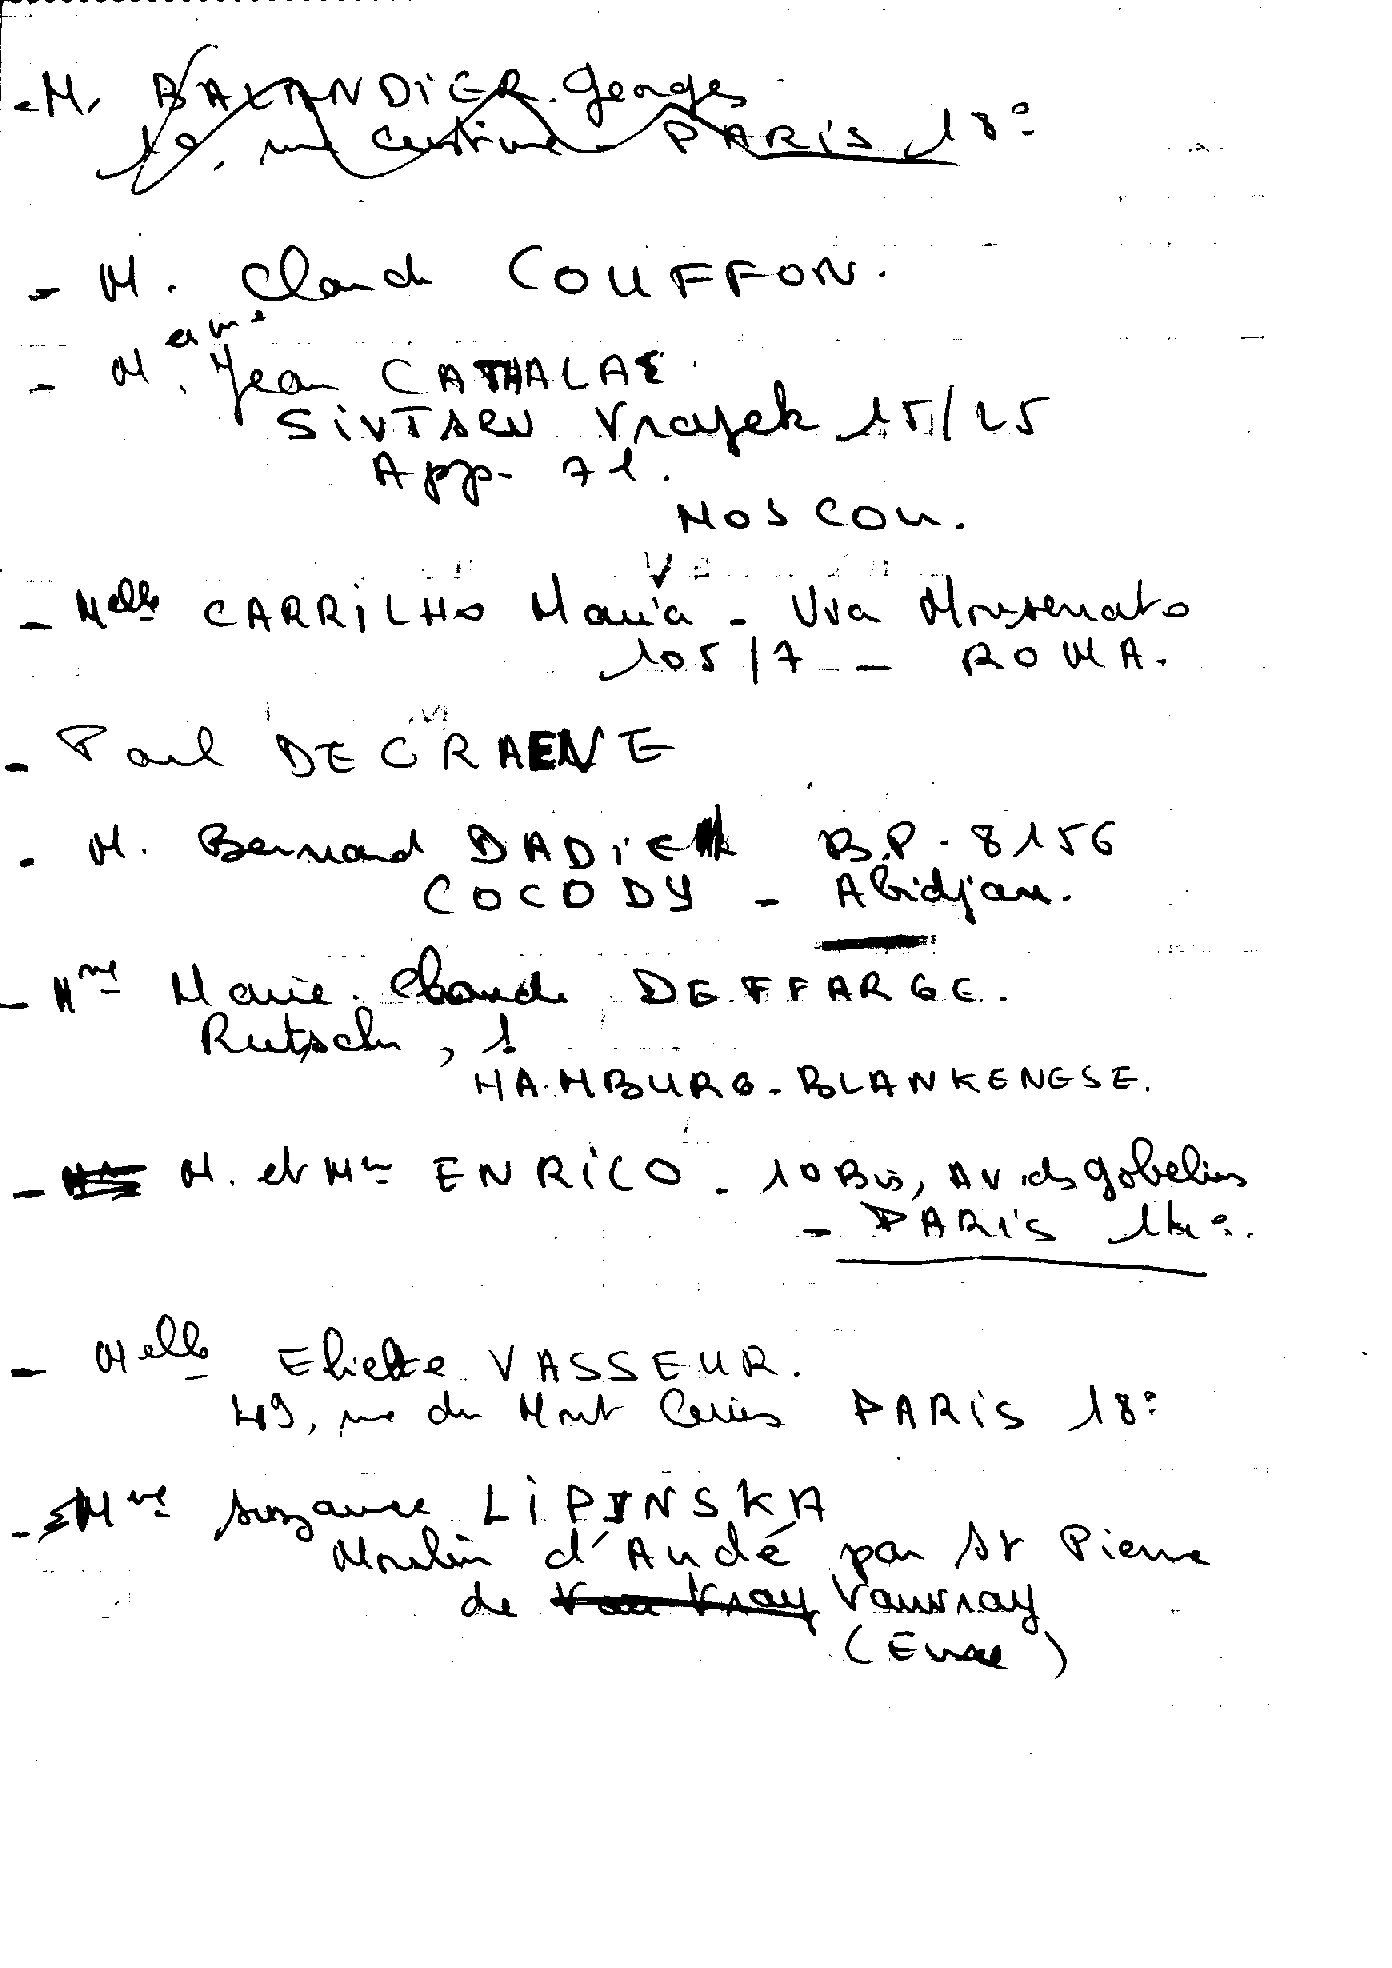 - M. BALANDIER. Georges
10, rue Custine - PARIS 18e
- M. Claude COUFFON.
- M. Jean CATHALAE
SIVTSEN Vrajek 15/25
App- 71.
MOSCOU.
- Melle CARRILHO Maria - Via Monserrato
105/7 - ROMA.
- Paul DECRAENE
- M. Bernard DADIE B.P. 8156
COCODY - Abidjan.
- Mme Marie. Claude DEFFARGE.
Rutsch, 1
HAMBURG-BLANKENESE.
- M. et Mme ENRICO - 10 Bis, Av. des Gobelins
- PARIS 14e.
- Melle Eliette VASSEUR.
49, rue du Mont Cenis PARIS 18e
- Mme Suzanne LIPINSKA
Moulin d'Andé par St Pierre
de Vau Vray Vauvray
(Eure)